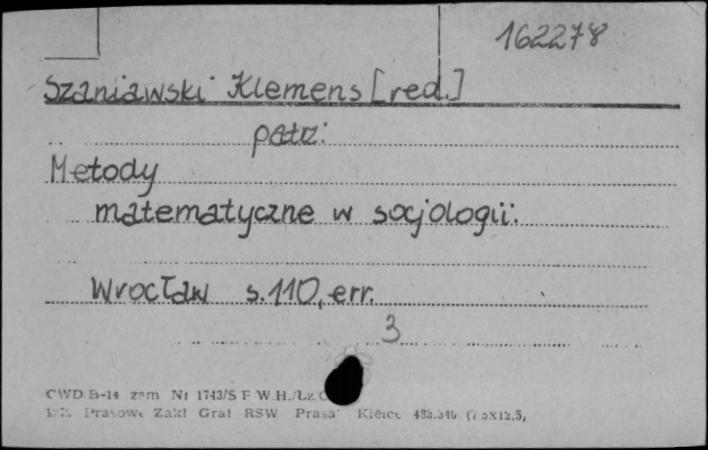 162278
Szaniawski Klemens [red.]
patrz:
Metody
matematyczne w socjologii.
Wrocław s.110, err.
3
CWD B-14 zam Nr 1743/S F W.H./Łz.
Prasowe Zakł Graf RSW Prasa Kielce